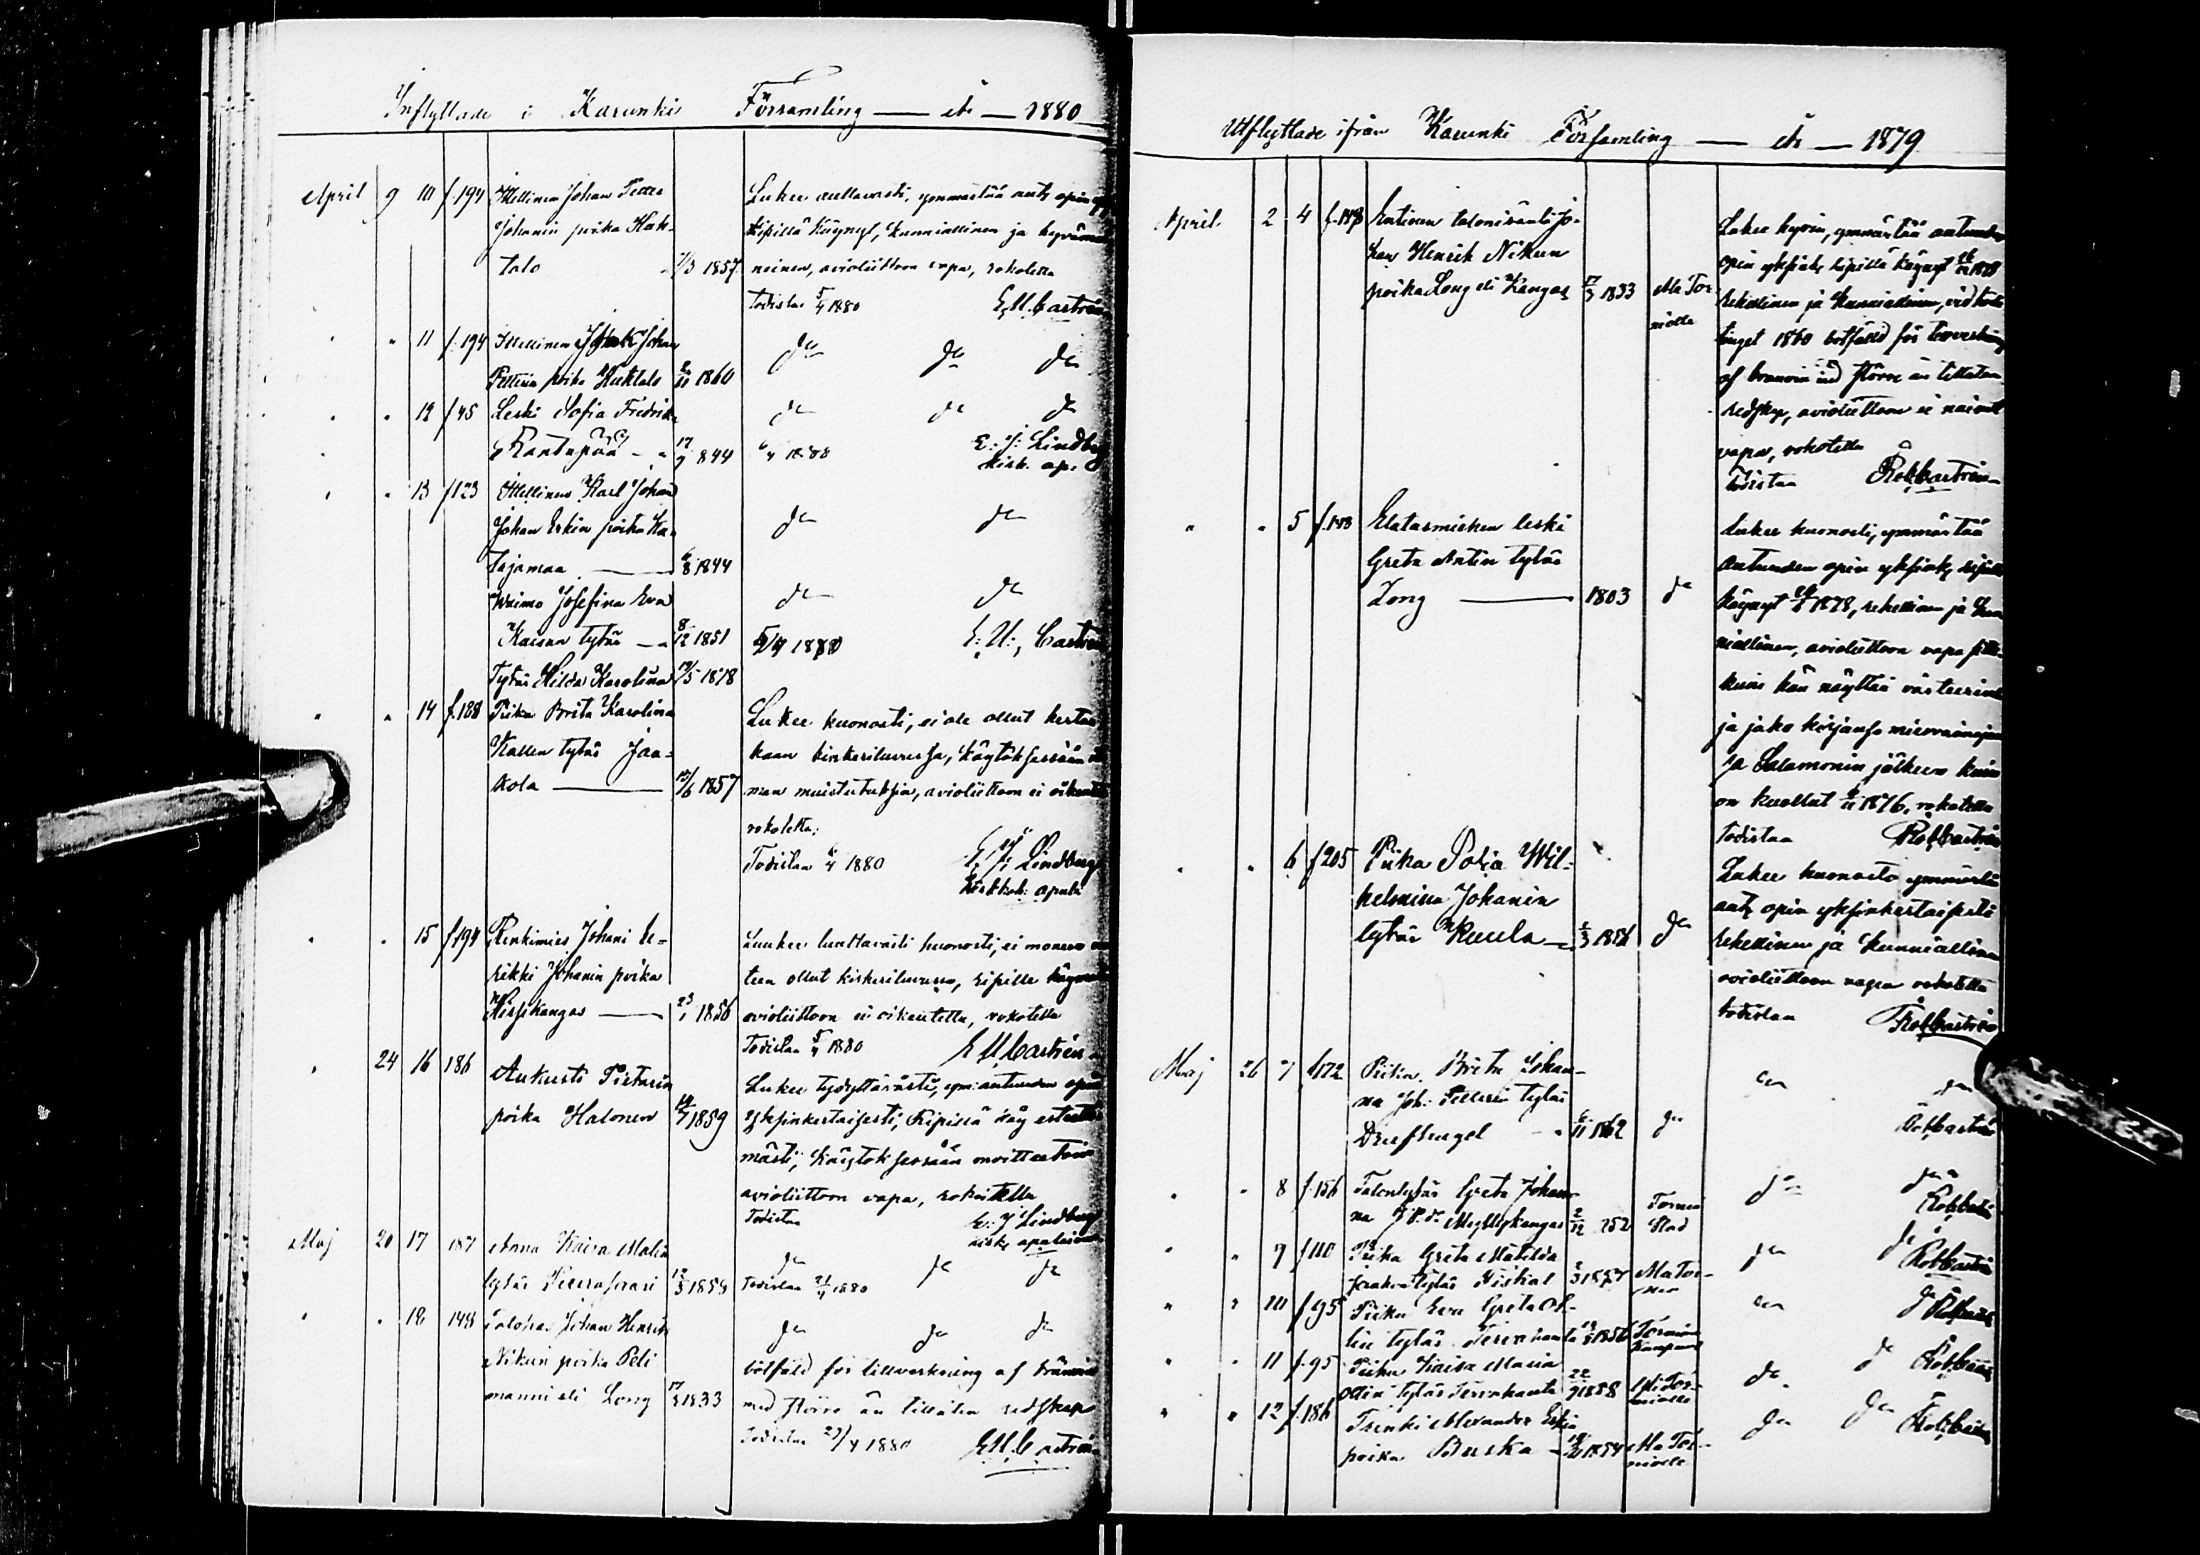 Inflyttade i Karunki Församling — år — 1880
April 9 10 f.194 Mellinen Johan Petter
Johanin poika Kuk-
talo 1/3 1857
Lukee auttavasti, ymmärtää aut. opin
Ripillä käynyt, kunniallinen ja hyvämai-
neinen, avioliittoon vapa, rokotettu
Todistaa 5/4 1880 E. U. Castrén
" " 11 f.194 Mellinen Isak Johan
Petterin poika Kuktalo 2/11 1860
do do do
" " 12 f 45 Leski Sofia Fredrika
Rantapää — " 17/9 844
do do do
6/4 1880 E. J. Lindberg
kirk. ap.
" " 13 f 123 Mellinen Karl Johan
Johan Eskin poika Ka-
tajamaa — 6/8 1844
do do
Waimo Josefina Eva
Kaisan tytär — " 8/12 1851
do do
5/4 1880 E. U. Castrén
Tytär Hilda Karolina 12/5 1878
" " 14 f.188 Piika Brita Karolina
Kallen tytär Jaa-
kola — 12/6 1857
Lukee huonosti, ei ole ollut kertaa-
kaan kinkeriluvussa, käytöksessään il-
man muistutuksia, avioliittoon ei oikeutettu
rokotettu.
Todistaa 6/4 1880 E. J. Lindberg
kirkkoh: apulai
" " 15 f194 Renkimies Johani E-
rikki Johanin poika
Kissikangas — 23/1 1856
Luukee luettavasti huonosti, ei moneen vuo-
teen ollut kinkeriluvussa, ripille käynyt
avioliittoon ei oikeutettu, rokotettu
Todistaa 5/4 1880 E U Castrén
" 24 16 186 Aukusti Pietarin
poika Halonen 14/7 1859
Lukee tydyttäväisti, ym: autuuden opin
yksinkertaisesti, Ripillä käy esteettö-
mästi, käytöksessään moitteetoin
avioliittoon vapa, rokotettu
Todistaa E: J Lindberg
kirk. apulainen
Maj 20 17 187 Anna Kaisa Matin
tytär Peuraseari 12/3 1859
do do do
Todistaa 21/4 1880
" " 18 148 Talokas Johan Henrik
Nikun poika Peli
manni eli Long 17/3 1833
do do do
bötfäld för tillverkning af bränvin
med större än tillåten redskap
Todistaa 27/4 1880 E U Castrén
Utflyttade ifrån Karunki Församling — år — 1879
April 2 4 f.148 Entinen talonisäntä Jo-
han Henrik Nikun
poika Long eli Kangas 17/3 1833 Ala Tor-
niolle
Lukee hyvin, ymmärtää autuuden
opin yksink, ripillä käynyt 1878
rehellinen ja kunniallinen, vid hösta
tinget 1860 botfälld för tillverkning
af brännvin med större än tillåten
redskap, avioliittoon ei nainut
vapa, rokotettu
Todistaa Rob Castrén
" " 5 f.148 Elatusmiehen leski
Greta Antin tytär
Long — 1803 do
Lukee huonosti, ymmärtää
Autuuden opin yksink, ripillä
käynyt 1878, rehellinen ja kun
niallinen, avioliittoon vapa sitte-
kuin hän näyttää
ja jako kirjansa miesvainajan
sa Salamonin jälkeen kuin
on kuollut 1876, rokotettu
Todistaa Rob Castrén
" " 6 f205 Piika Wil-
helmina Johanin
tytär Kuula — do
Lukee huonosta ymmärtä
aut. opin yksinkertaisesti
rehellinen ja kunniallinen
avioliittoon vapa rokotettu
todistaa Rob Castrén
Maj 26 7 f172 Piika Brita Johan-
na Joh: Petterin tytär
Drufhagel " 6/11 1862 do
do do
Rob Castrén
" " 8 f.156 Talontytär Greta Johan-
na Myllykangas 2/12 852 Torneo
Stad
do do
Rob Castrén
" " 9 f110 Piika Greta Matilda
tytär 1857 Ala Tor-
nio
do do Rob Castrén
" " 10 f95 Piika Eva Greta Ol-
lin tytär Tervahauta 1856 Tornion
Kaupunk
do do Rob Castrén
" " 11 f.95 Piika Kaisa Maria
Ollin tytär Tervahauta 22/9 1858 Ali Tor-
niolle
do do Rob Castrén
" " 12 f.186 Trenki Alexander Eskin
poika Puruska — 1854 Ala Tor-
niolle
do do Rob Castrén